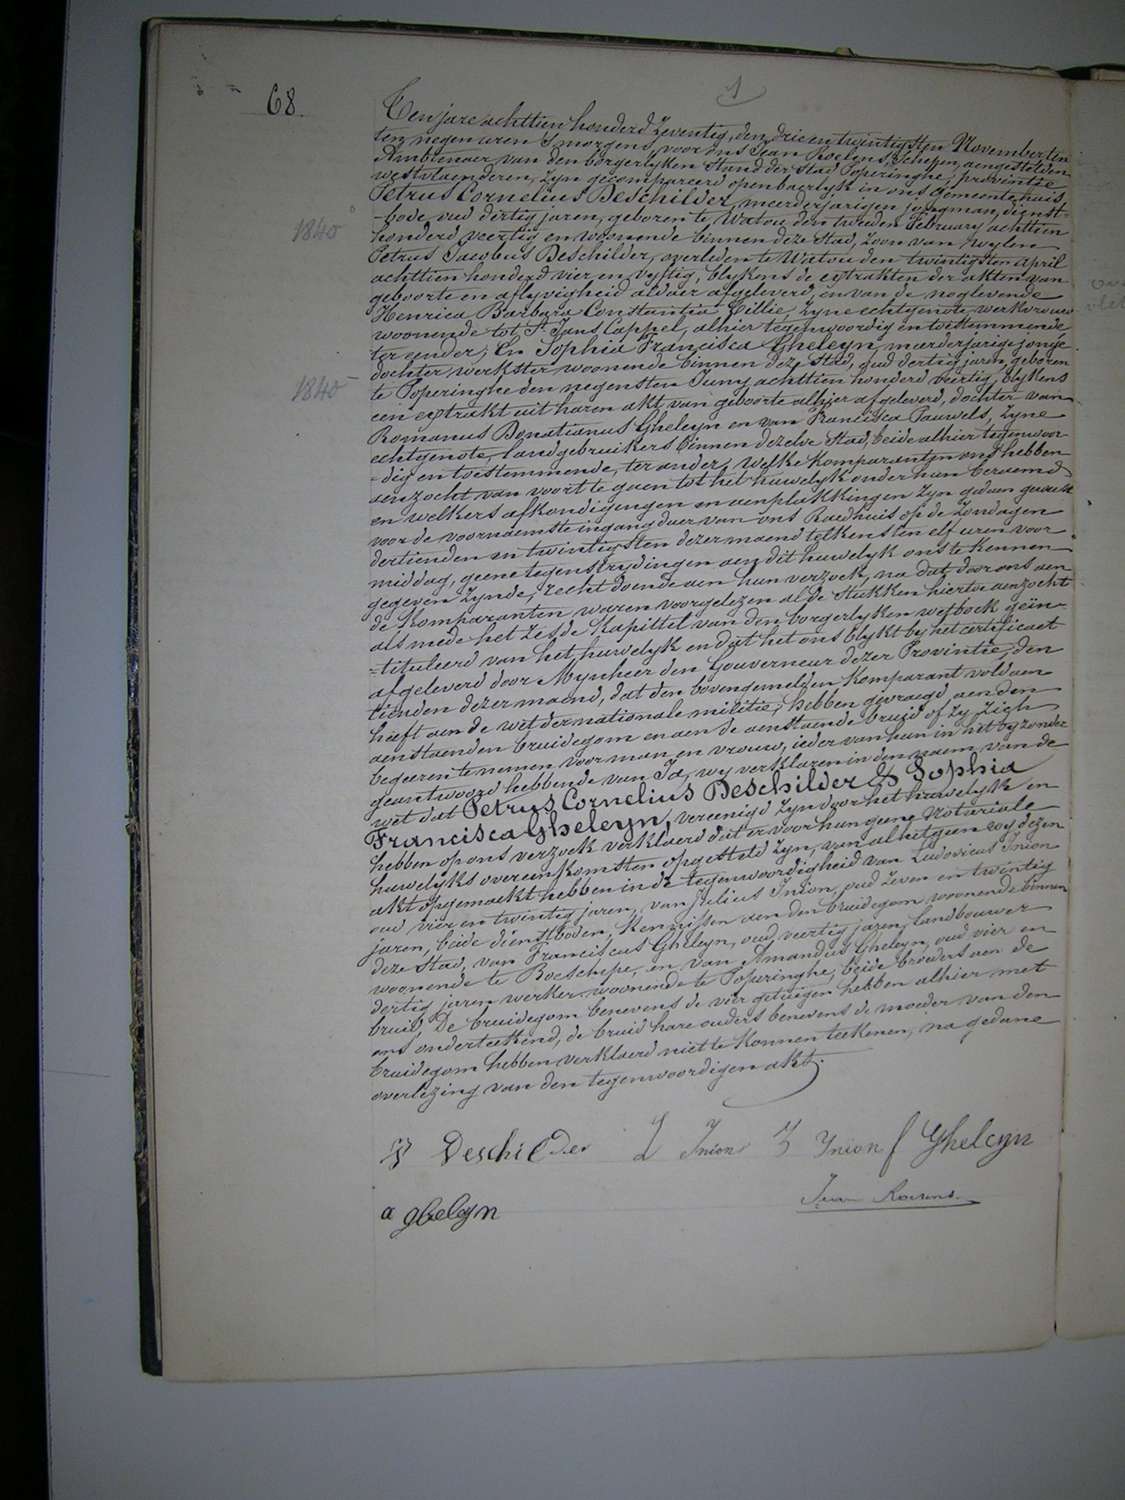 1
68
Ten jare achttien honderd zeventig, den drie en twintigsten November ten
ten negen uren 's morgens, voor ons Jean Roelens, schepen, aengestelden
Ambtenaer van den borgerlyken Stand der Stad Poperinghe, provintie
westvlaenderen, zyn gecompareerd openbaerlyk in ons Gemeentehuis
Petrus Cornelius Deschilder, meerderjarigen jongman, dienst-
-bode oud dertig jaren, geboren te Watou den tweeden February achttien
1840
honderd veertig en woonende binnen deze Stad, zoon van wylen
Petrus Jacobus Deschilder, overleden te Watou den twintigsten april
achttien honderd vier en vyftig, blykens de extrakten der akten van
geboorte en aflyvigheid aldaer afgeleverd, en van de noglevende
Henrica Barbara Constantia Tillie, zyne echtgenote, werkvrouw
woonende tot St Jans Cappel, alhier tegenwoordig en toestemmende
ter eender, En Sophia Francisca Gheleyn, meerderjarige jonge
dochter, werkster woonende binnen deze Stad, oud dertig jaren, geboren
1840
te Poperinghe den negensten Juny achttien honderd veertig, blykens
een extrakt uit haren akt van geboorte alhier afgeleverd, dochter van
Romanus Donatianus Gheleyn en van Francisca Pauwels, zyne
echtgenote, landgebruikers binnen dezelve Stad, beide alhier tegenwoor-
-dig en toestemmende, ter ander; welke komparanten ons hebben
aenzocht van voort te gaen tot het huwelyk onder hun beraemd
en welkers afkondigingen en aenplakkingen zyn gedaen geweest
voor de voornaemste ingangdeur van ons Raedhuis op de zondagen
dertienden en twintigsten dezer maend telkens ten elf uren voor
middag, geene tegenstrydingen aen dit huwelyk ons te kennen
gegeven zynde, recht doende aen hun verzoek, na dat door ons aen
de komparanten waren voorgelezen al de stukken hiertoe aenzocht
als mede het zesde kapittel van den borgerlyken wetboek geïn-
-tituleerd van het huwelyk en dat het ons blykt by het certificaet
afgeleverd door Mynheer den Gouverneur dezer Provintie, den
tienden dezer maend, dat den bovengemelden komparant voldaen
heeft aen de wet der nationale militie; hebben gevraegd aen den
aenstaenden bruidegom en aen de aenstaende bruid of zy zich
begeeren te nemen voor man en vrouw, ieder van hun in het byzonder
geantwoord hebbende van Ja, wy verklaren in den naem van de
wet dat Petrus Cornelius Deschilder & Sophia
Francisca Gheleyn, vereenigd zyn door het huwelyk en
hebben op ons verzoek verklaerd dat er voor hun geene Notariale
huwelyks overeenkomsten opgesteld zyn, van al hetgeen wy dezen
akt opgemaekt hebben in de tegenwoordigheid van Ludovicus Inion
oud vier en twintig jaren, van Julius Inion, oud zeven en twintig
jaren, beide dienstboden, kennissen aen den bruidegom woonende binnen
deze Stad, van Franciscus Gheleyn, oud veertig jaren, landbouwer
woonende te Boeschepe, en van Amandus Gheleyn, oud vier en
dertig jaren werker woonende te Poperinghe, beide broeders aen de
bruid, De bruidegom benevens de vier getuigen hebben alhier met
ons onderteekend, de bruid hare ouders benevens de moeder van den
bruidegom hebben verklaerd niet te konnen teekenen, na gedane
overlezing van den tegenwoordigen akt.
P Deschilder L Inion J Inion f Gheleyn
a gheleyn Jean Roelens